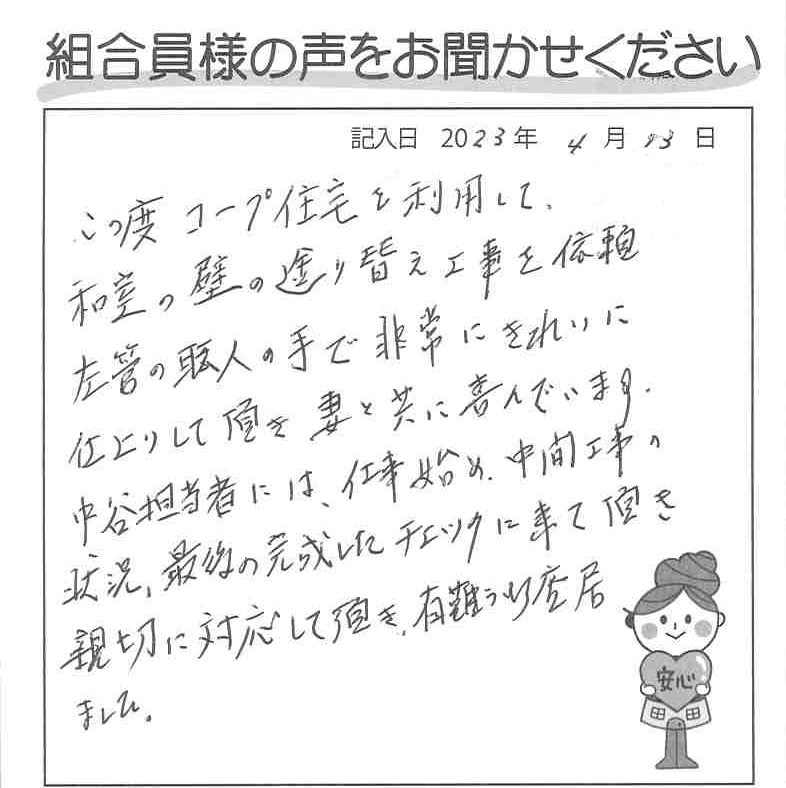 組合員様の声をお聞かせください
記入日 2023年 4月 13日
この度 コープ住宅を利用して、
和室の壁の塗り替え工事を依頼
左管の職人の手で非常にきれいに
仕上りして頂き 妻と共に喜んでいます。
中谷担当者には、仕事始め、中間工事の
状況、最後の完成したチェックに来て頂き
親切に対応して頂き、有難う御座居
ました。
安心